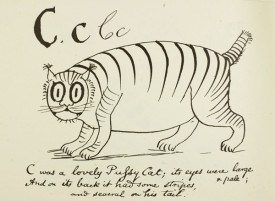 C. c C c
C was a lovely Puſsy Cat; its eyes were large
& pale;
And on its back it had some stripes,
and several on his tail.